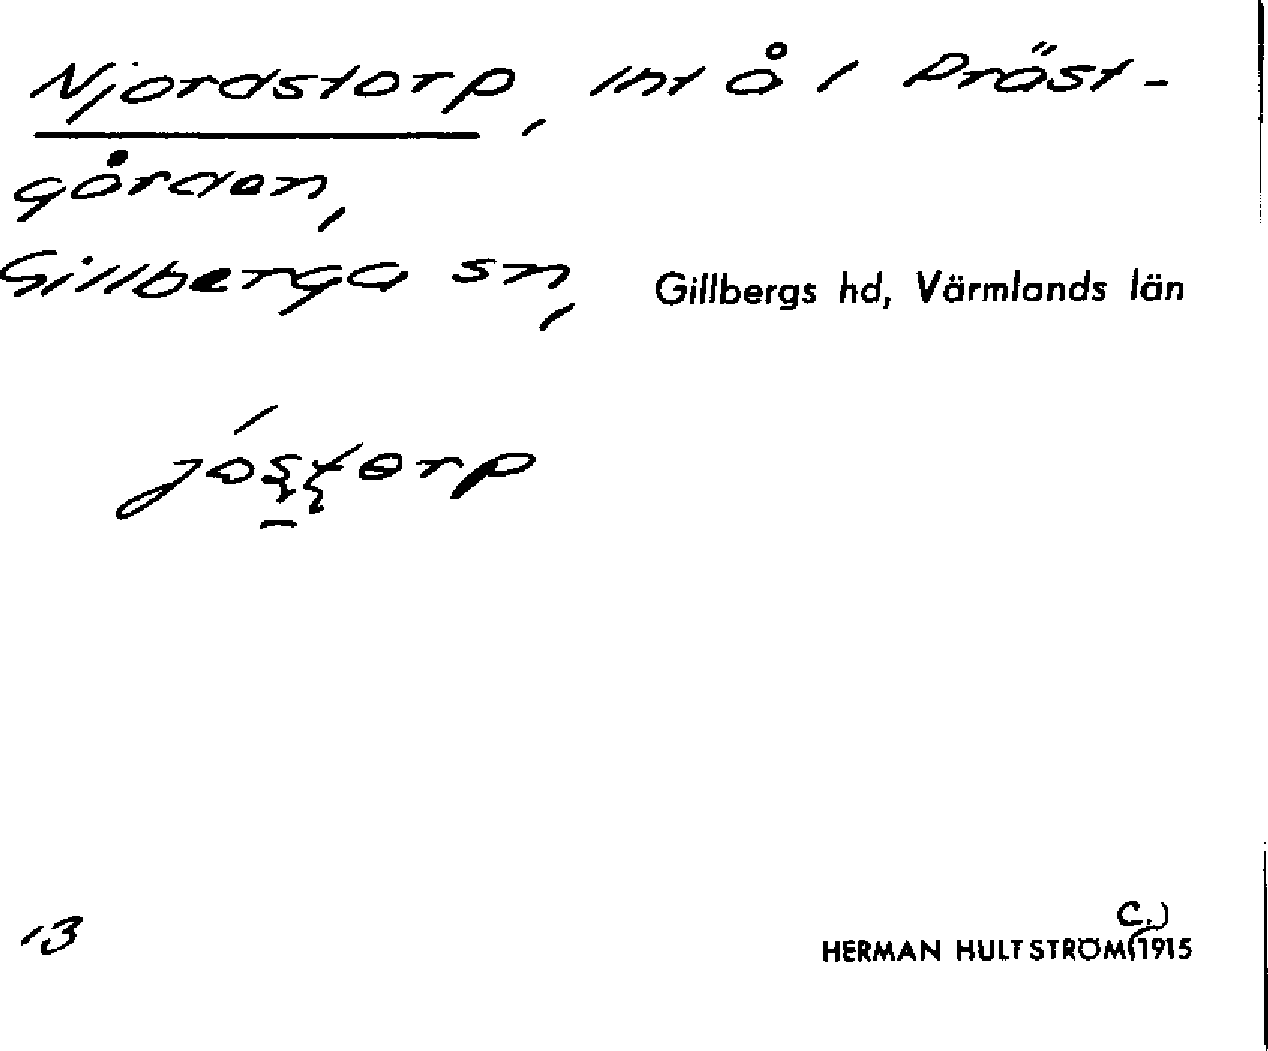 Njordstorp, int å i Präst-
gården,
Gillberga sn, Gillbergs hd, Värmlands län
jo̱stɵrp
13
HERMAN HULTSTRÖM (C.) 1915